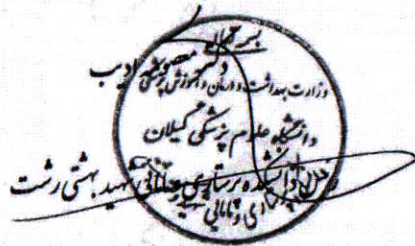 بسمه تعالی
دکتر معصومه ادیب
وزارت بهداشت و درمان و آموزش پزشکی
دانشگاه علوم پزشکی گیلان
دانشکده پرستاری مامایی شهید بهشتی رشت